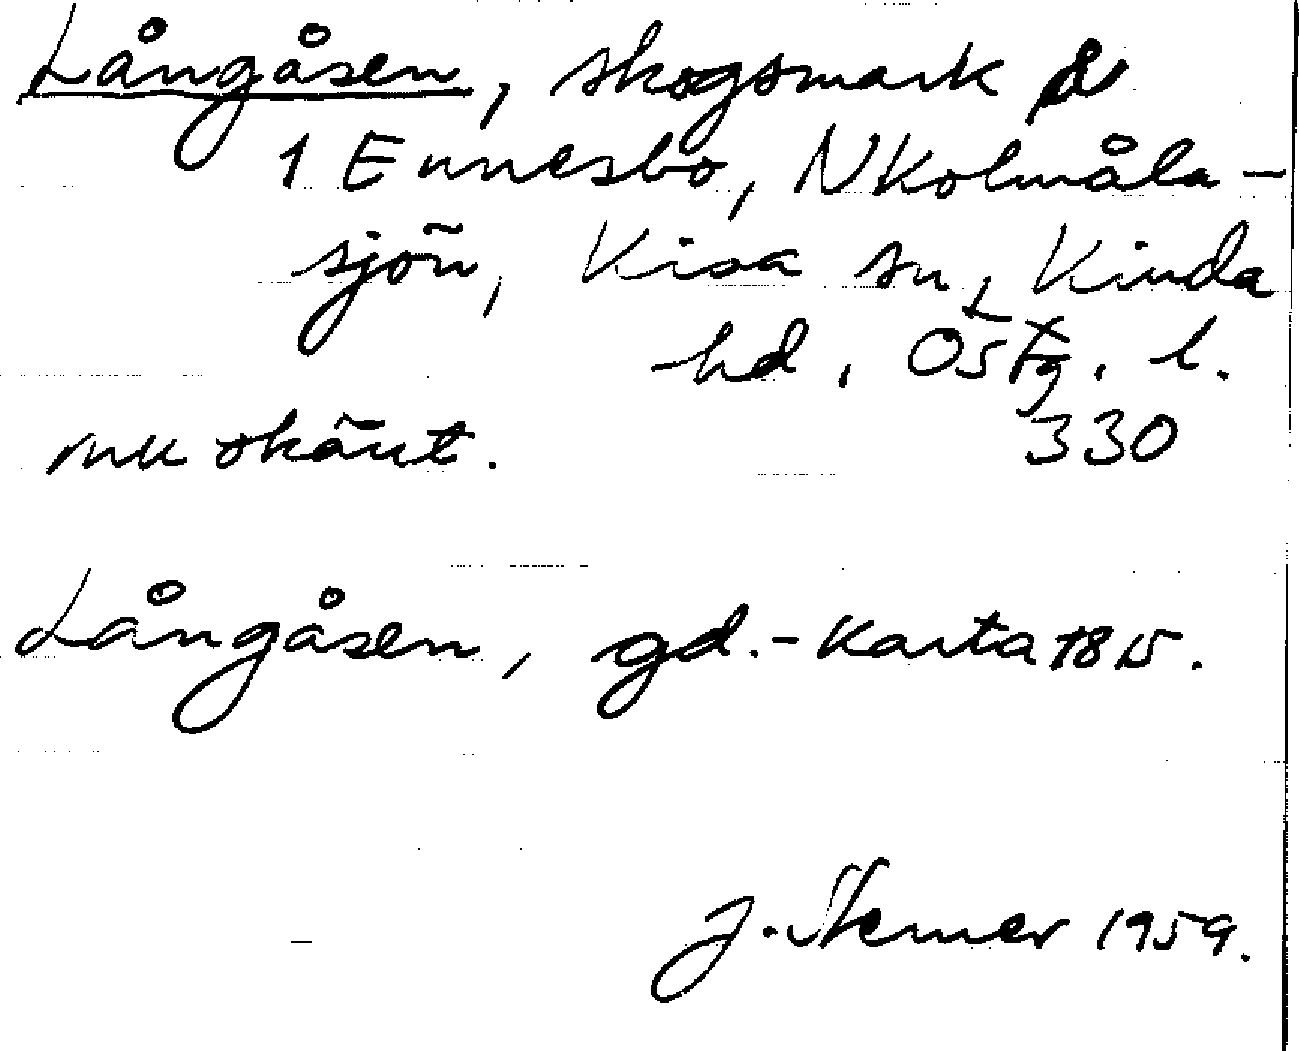 Långåsen, skogsmark
1 Ennesbo, N Kolmåla-
sjön, Kisa sn, Kinda
hd, Östg. l.
330
Långåsen, gd.-Karta 1815.
1959.